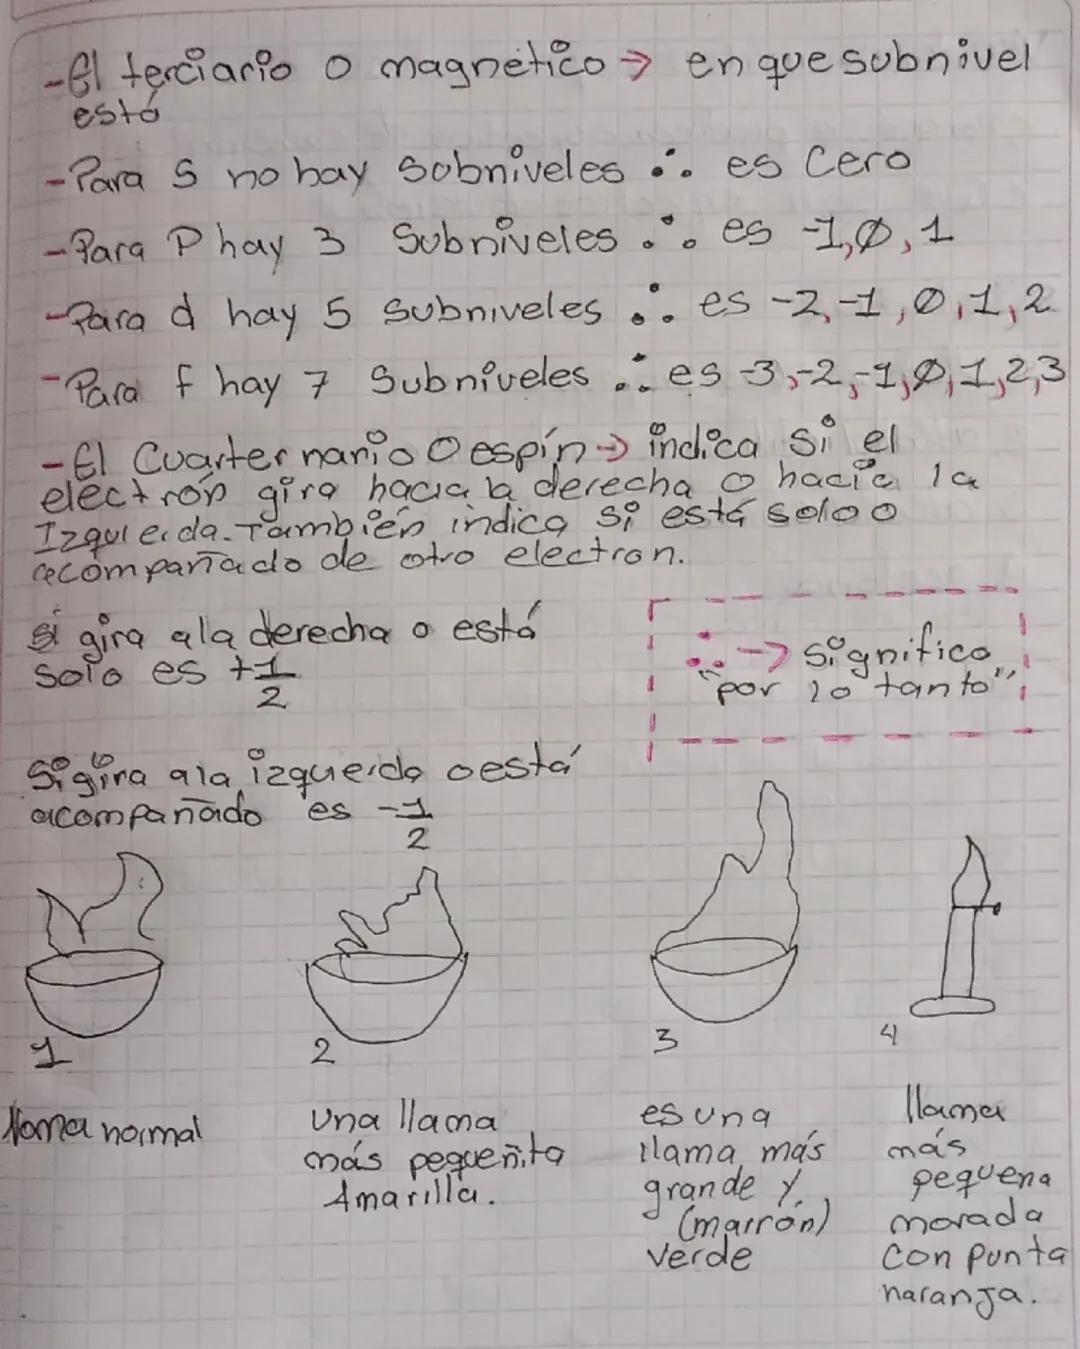 -El terciario o magnético → en que subnivel
está
-Para s no hay subniveles ∴ es cero
-Para P hay 3 subniveles ∴ es -1,0,1
-Para d hay 5 subniveles ∴ es -2,-1,0,1,2
-Para f hay 7 subniveles ∴ es -3,-2,-1,0,1,2,3
-El Cuarternario o espín → indica si el
electrón gira hacia la derecha o hacia la
Izquierda. También indica si está solo o
acompañado de otro electron.
si gira a la derecha o está
solo es +1/2
∴ → significa
"por lo tanto"
Si gira a la izquierda o está
acompañado es -1/2
1
2
3
4
llama normal
Una llama
más pequeñita
Amarilla.
es una
llama más
grande y
(marrón)
verde
llama
más
pequena
morada
con punta
naranja.